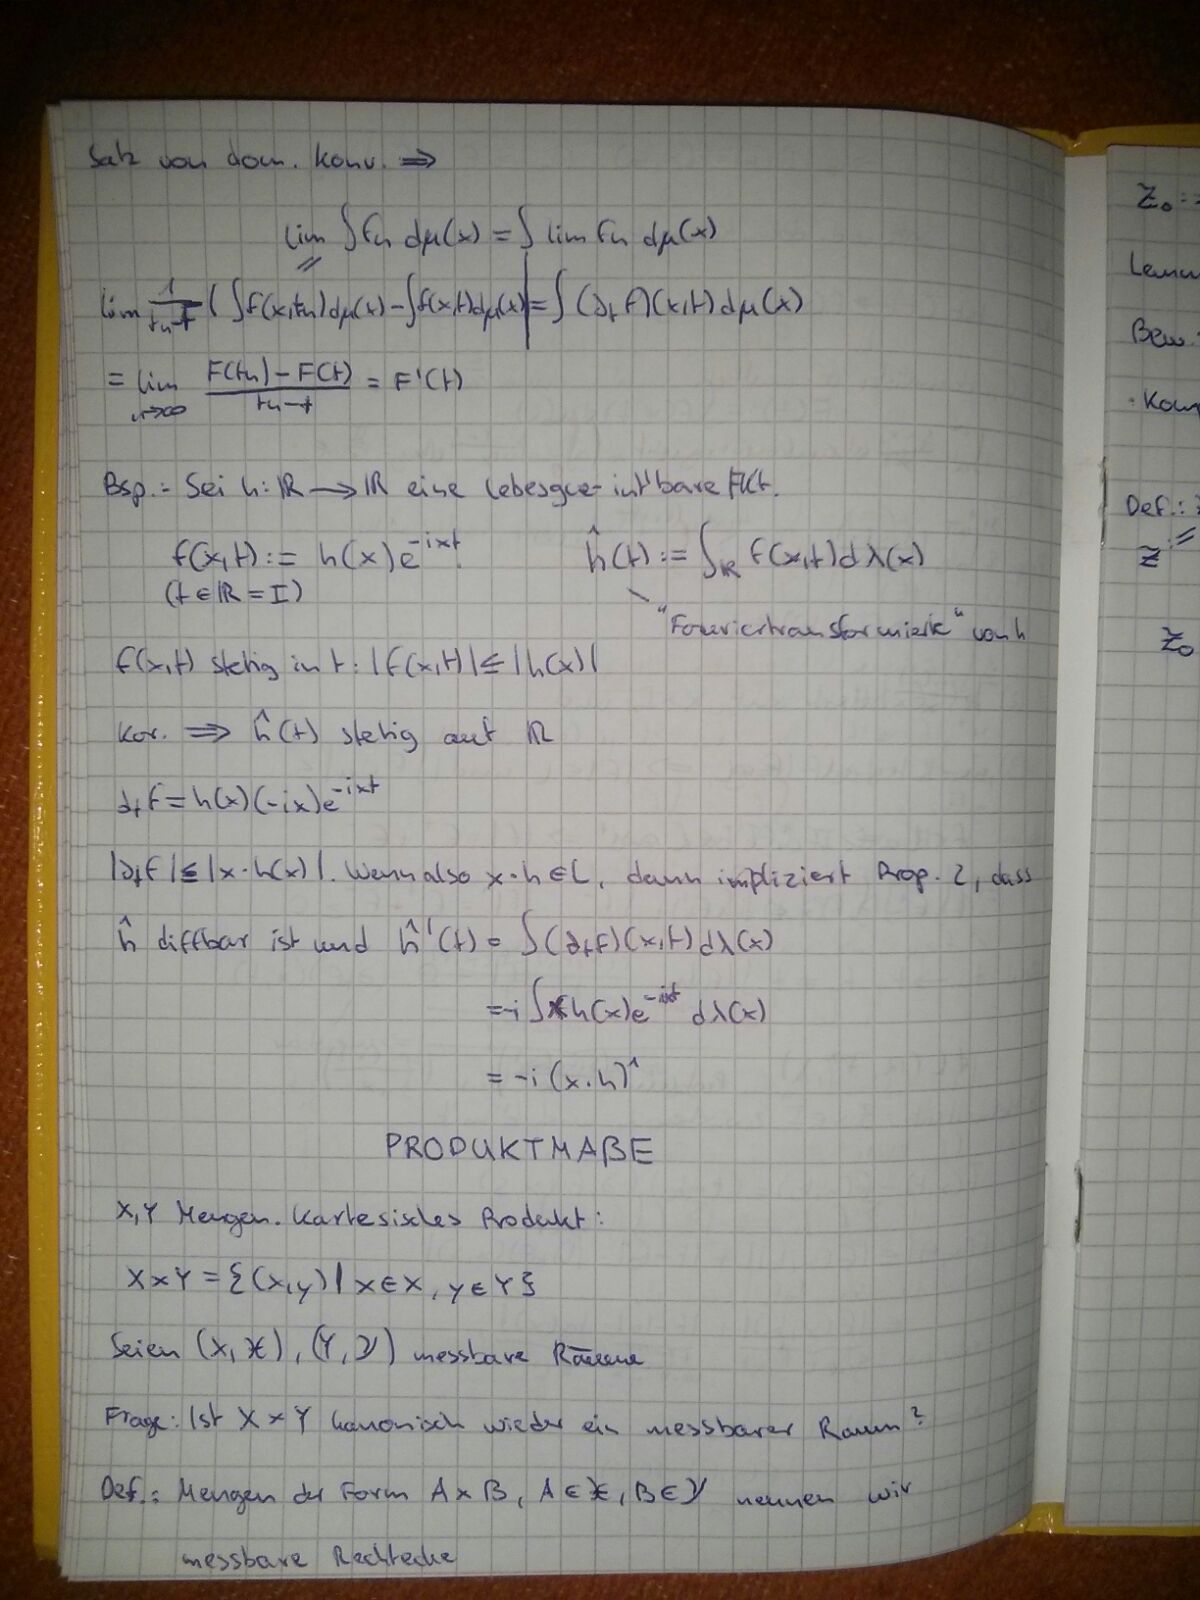 Satz von dom. Konv. ⇒
lim ∫ fn dμ(x) = ∫ lim fn dμ(x)
lim 1/(tn-t) ( ∫f(x,tn)dμ(x) - ∫f(x,t)dμ(x) = ∫ (∂tf)(x,t)dμ(x)
= lim n→∞ (F(tn) - F(t))/(tn-t) = F'(t)
Bsp.: Sei h: ℝ → ℝ eine Lebesgue-int'bare Fkt.
f(x,t) := h(x)e^{-ixt} ĥ(t) := ∫_ℝ f(x,t)dλ(x)
(t ∈ ℝ = I)
"Fouriertransformierte" von h
f(x,t) stetig in t: |f(x,t)| ≤ |h(x)|
Kor. ⇒ ĥ(t) stetig auf ℝ
∂tf = h(x)(-ix)e^{-ixt}
|∂tf| ≤ |x·h(x)|. Wenn also x·h ∈ L, dann impliziert Prop. 2, dass
ĥ diffbar ist und ĥ'(t) = ∫(∂tf)(x,t)dλ(x)
= -i ∫ x h(x)e^{-ixt} dλ(x)
= -i (x·h)^
PRODUKTMAßE
X,Y Mengen. Kartesisches Produkt:
X×Y = {(x,y) | x∈X, y∈Y}
Seien (X,𝒳), (Y,𝒴) messbare Räume
Frage: Ist X×Y kanonisch wieder ein messbarer Raum?
Def.: Mengen der Form A×B, A∈𝒳, B∈𝒴 nennen wir
messbare Rechtecke
Z0 :
Bew.:
Def.:
Z̃ :=
Z0